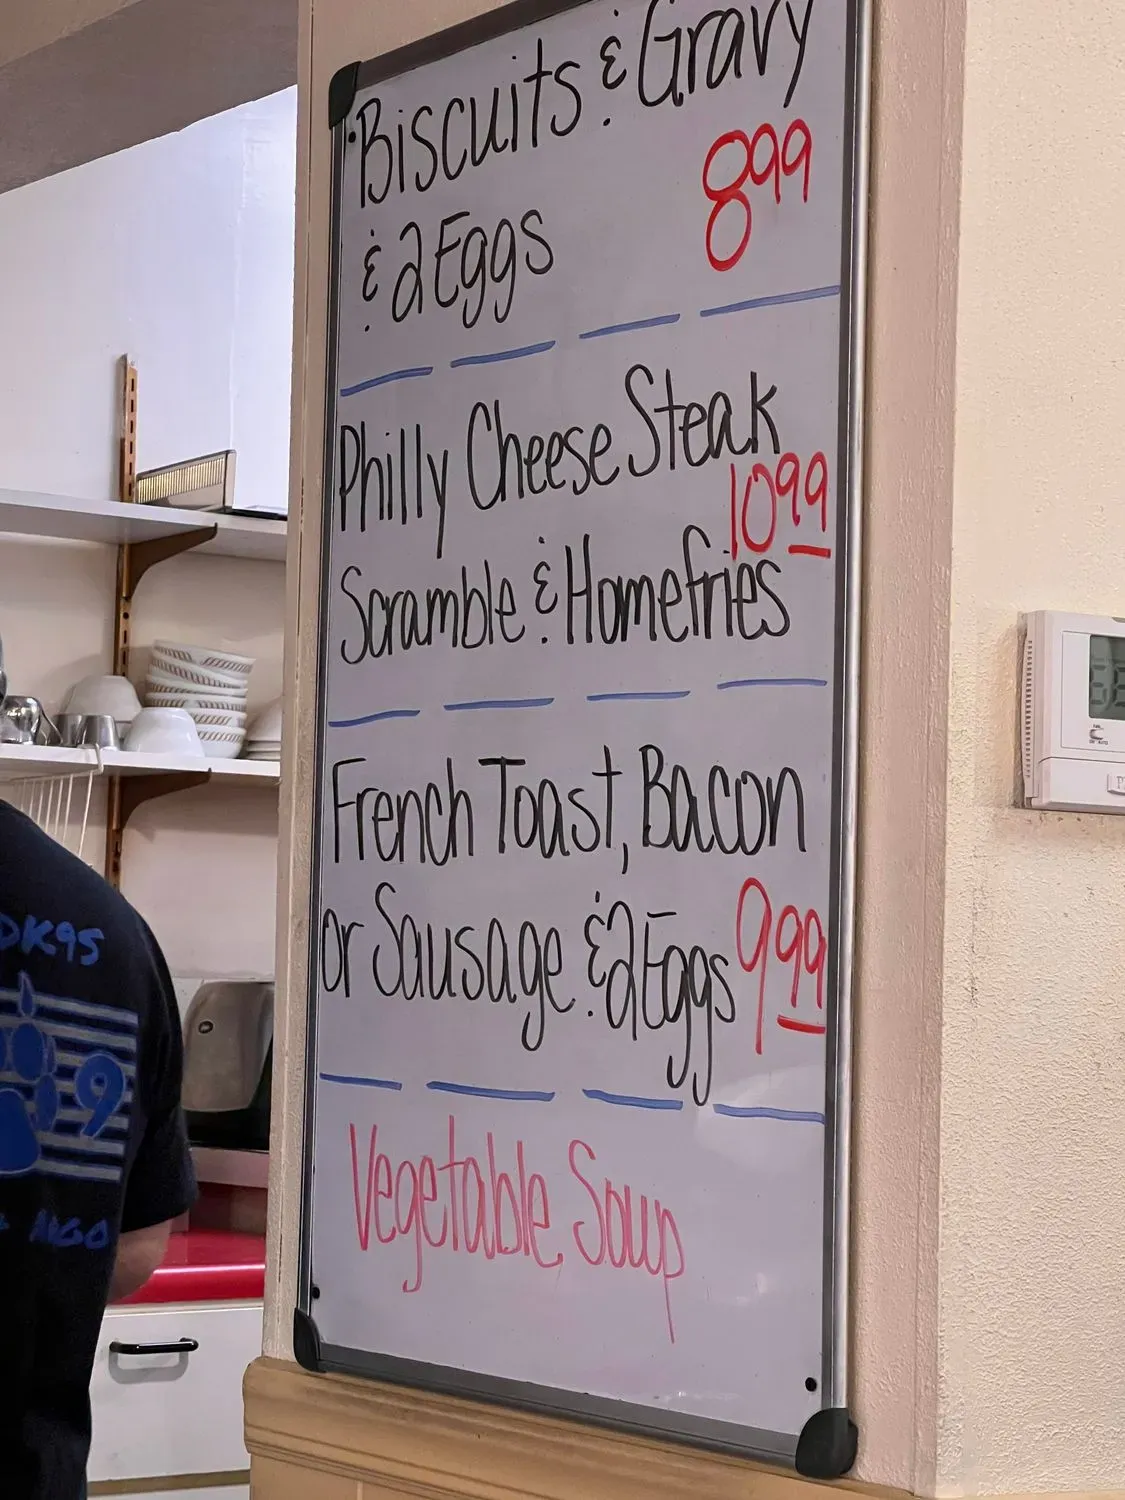 Biscuits & Gravy
8 99
& 2 Eggs
Philly Cheese Steak
10 99
Scramble & Homefries
French Toast, Bacon
or Sausage & 2 Eggs 9 99
Vegetable Soup
DK95
9